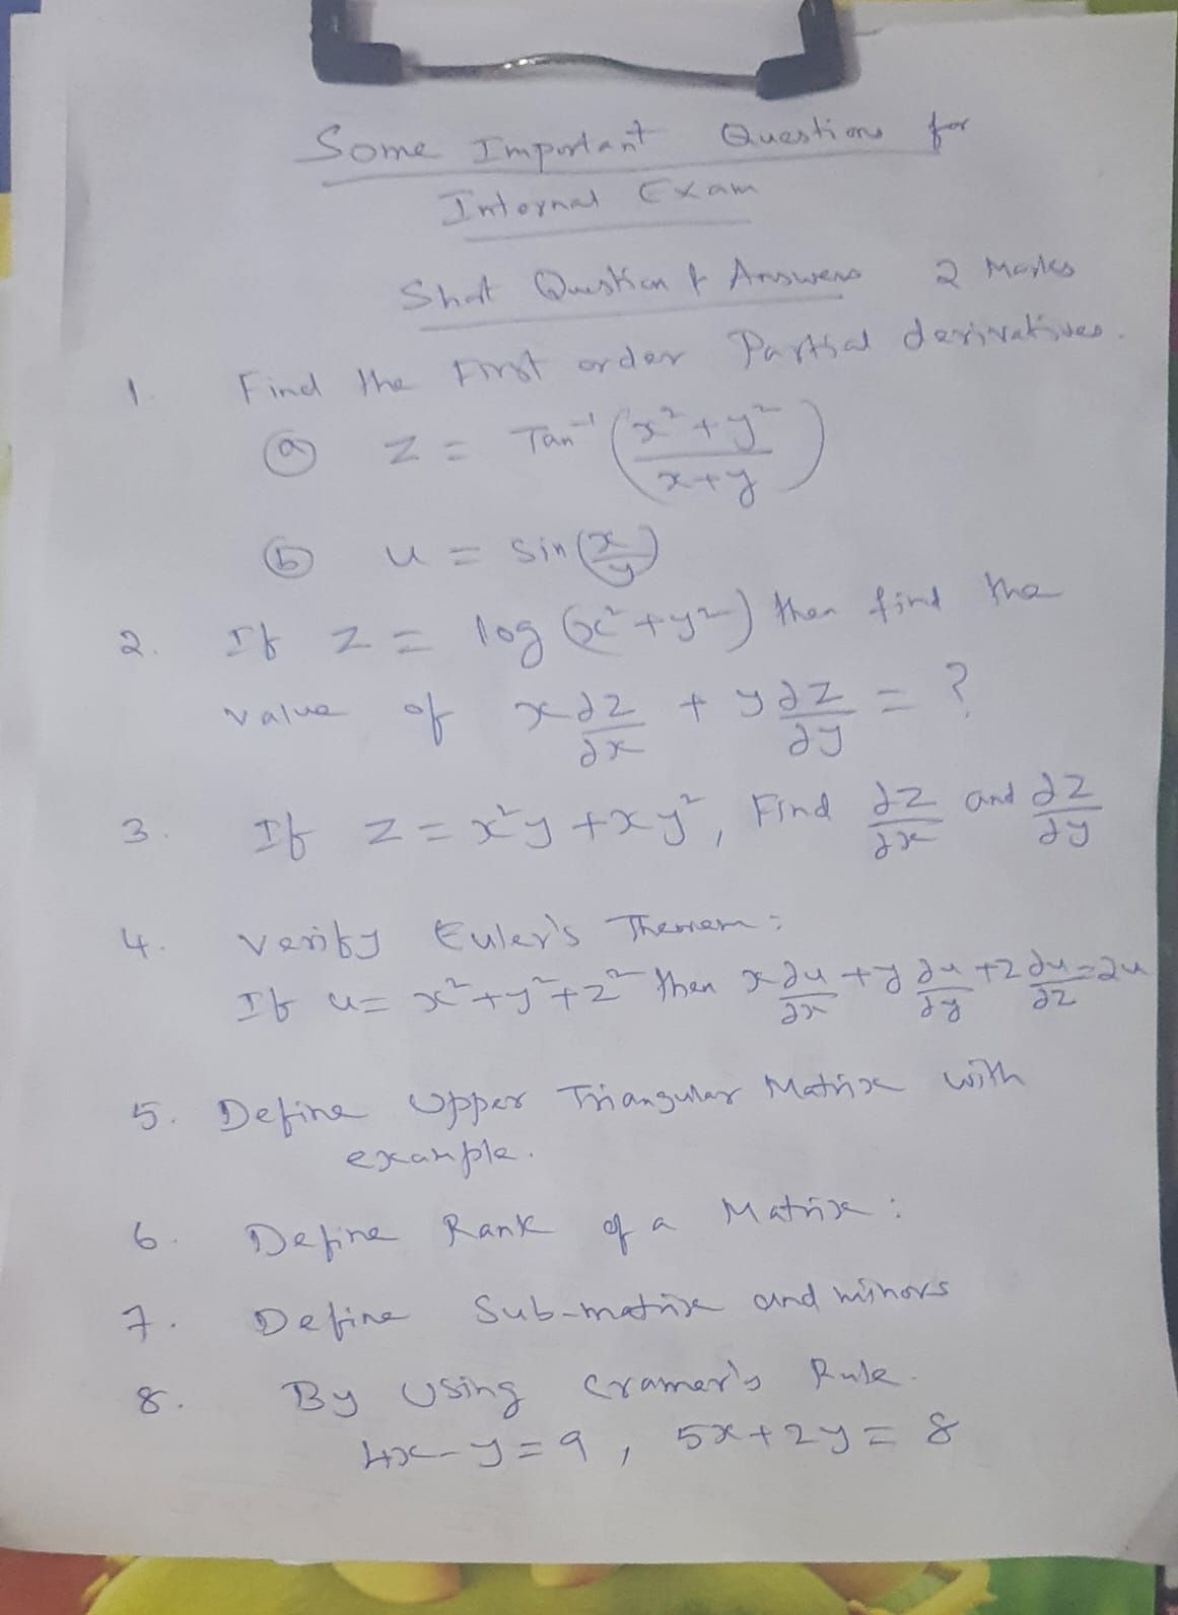 Some Important Questions for
Internal Exam
Short Question & Answers 2 Marks
1. Find the First order Partial derivatives.
(a) z = Tan⁻¹ ((x²+y²)/(x+y))
(b) u = sin(x/y)
2. If z = log (x²+y²) then find the
value of x ∂z/∂x + y ∂z/∂y = ?
3. If z = x²y + xy², Find ∂z/∂x and ∂z/∂y
4. Verify Euler's Theorem:
If u = x²+y²+z² then x ∂u/∂x + y ∂u/∂y + z ∂u/∂z = 2u
5. Define Upper Triangular Matrix with
example.
6. Define Rank of a Matrix:
7. Define Sub-matrix and minors
8. By Using Cramer's Rule.
4x-y=9, 5x+2y=8